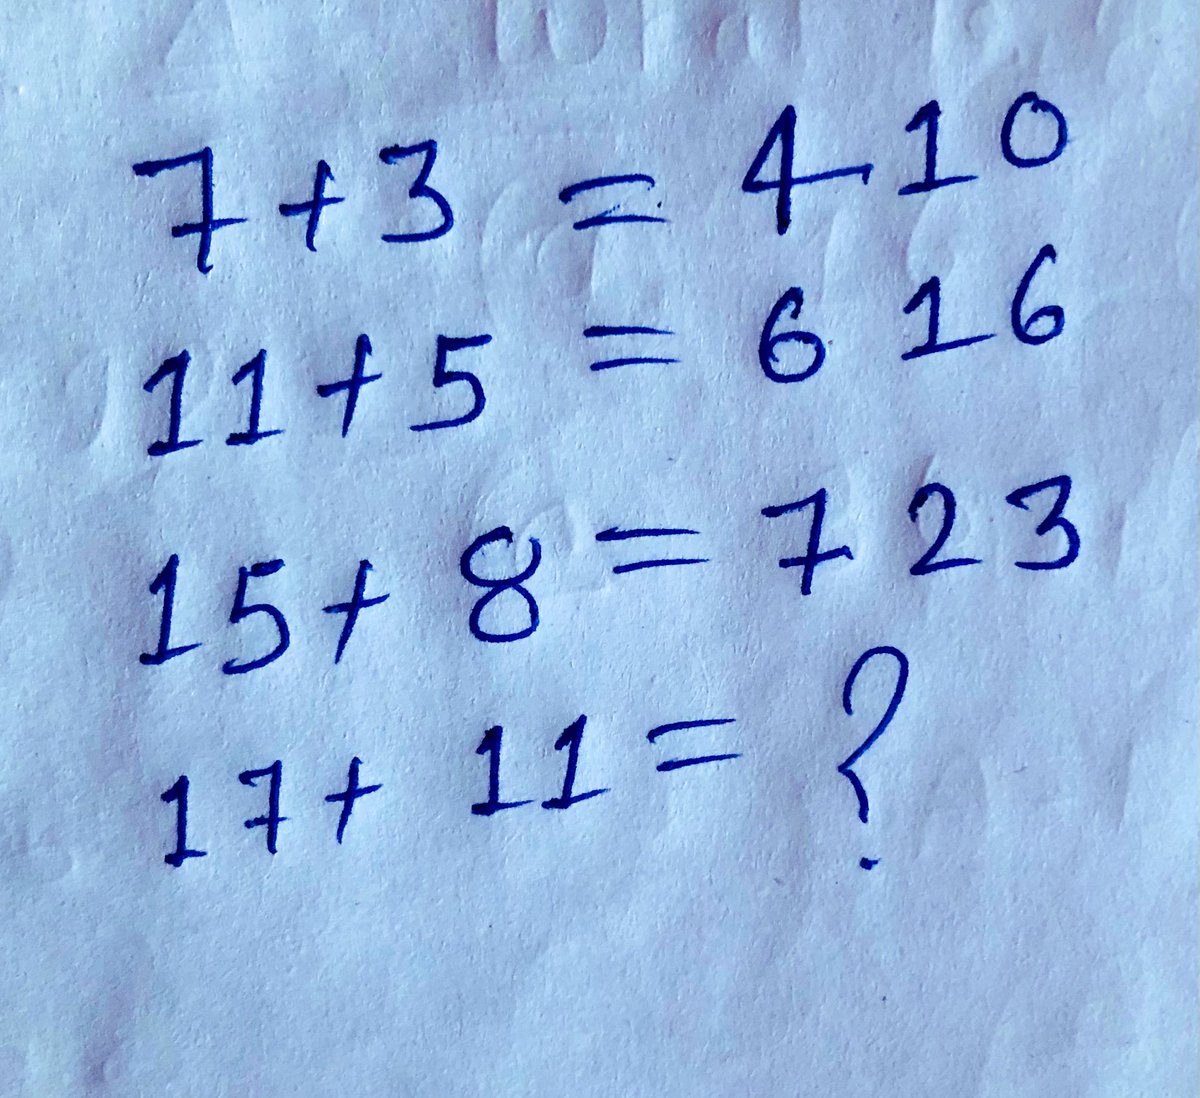 7+3 = 410
11+5 = 616
15+8 = 723
17+ 11 = ?